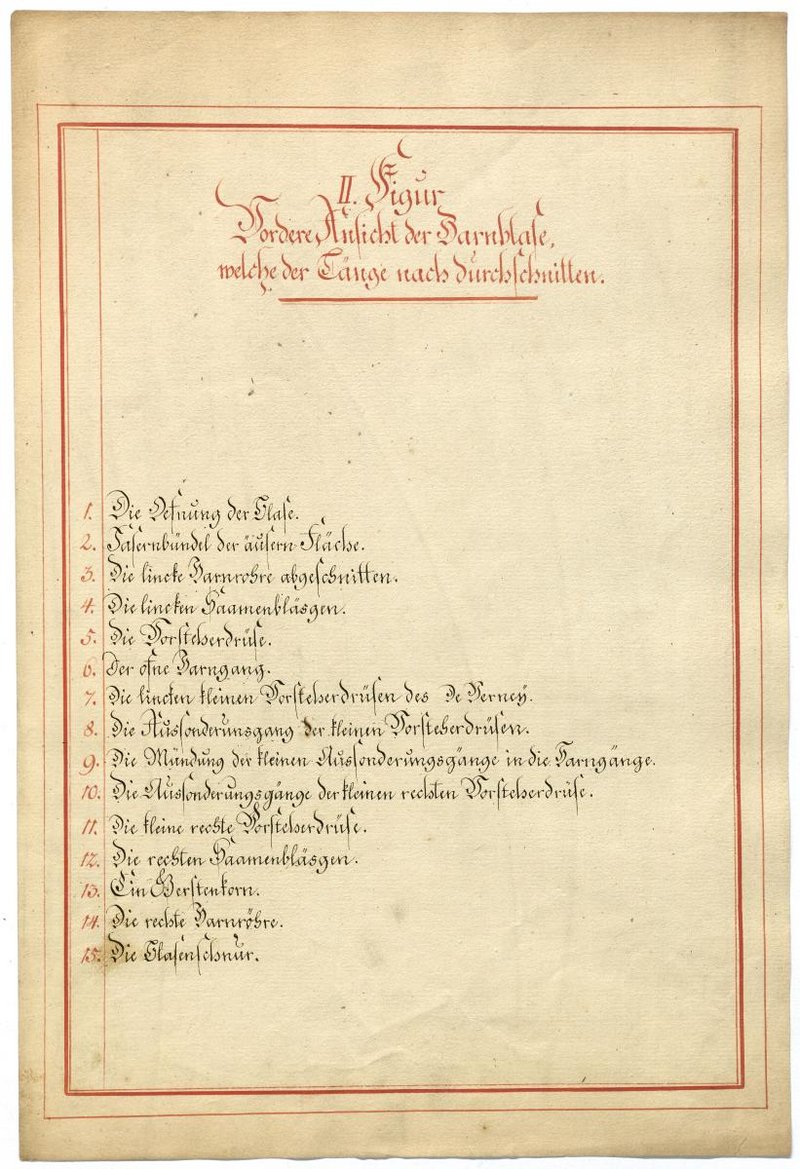 II. Figur
Vordere Ansicht der Harnblase,
welche der Länge nach durchschnitten.
1. Die Oefnung der Blase.
2. Fasernbündel der äusern Fläche.
3. Die lincke Harnrohre abgeschnitten.
4. Die lincken Saamenbläsgen.
5. Die Vorsteherdrüse.
6. Der ofne Harngang.
7. Die lincken kleinen Vorsteherdrüsen des De Verney.
8. Die Aussonderunsgang der kleinen Vorsteherdrüsen.
9. Die Mündung der kleinen Aussonderungsgänge in die Harngänge.
10. Die Aussonderungsgänge der kleinen rechten Vorsteherdrüse.
11. Die kleine rechte Vorsteherdrüse.
12. Die rechten Saamenbläsgen.
13. Ein Gerstenkorn.
14. Die rechte Harnröhre.
15. Die Blasenschnur.